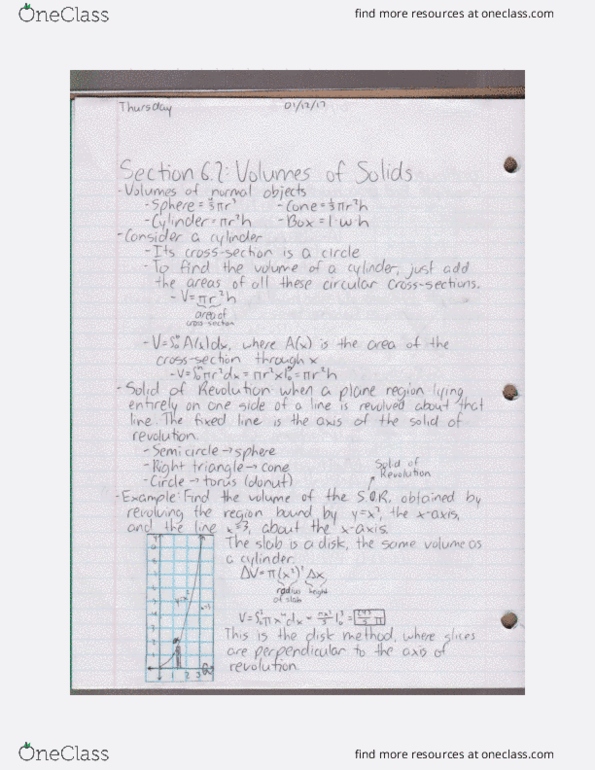 OneClass
find more resources at oneclass.com
Thursday 01/12/17
Section 6.2: Volumes of Solids
- Volumes of normal objects
- Sphere = 4/3πr³ - Cone = 1/3πr²h
- Cylinder = πr²h - Box = l·w·h
- Consider a cylinder
- Its cross-section is a circle
- To find the volume of a cylinder, just add
the areas of all these circular cross-sections.
- V = πr²h
area of
cross-section
- V = ∫₀ʰ A(x)dx, where A(x) is the area of the
cross-section through x
- V = ∫₀ʰ πr²dx = πr²x|₀ʰ = πr²h
- Solid of Revolution: when a plane region lying
entirely on one side of a line is revolved about that
line. The fixed line is the axis of the solid of
revolution.
- Semicircle → sphere
- Right triangle → cone
- Circle → torus (donut)
Solid of
Revolution
- Example: Find the volume of the S.O.R. obtained by
revolving the region bound by y=x², the x-axis,
and the line x=3, about the x-axis.
The slab is a disk, the same volume as
a cylinder.
ΔV = π(x²)² Δx
radius height
of slab
V = ∫₀³ πx⁴dx = πx⁵/5 |₀³ = 243/5 π
This is the disk method, where slices
are perpendicular to the axis of
revolution.
y=x²
1 2 3
OneClass
find more resources at oneclass.com